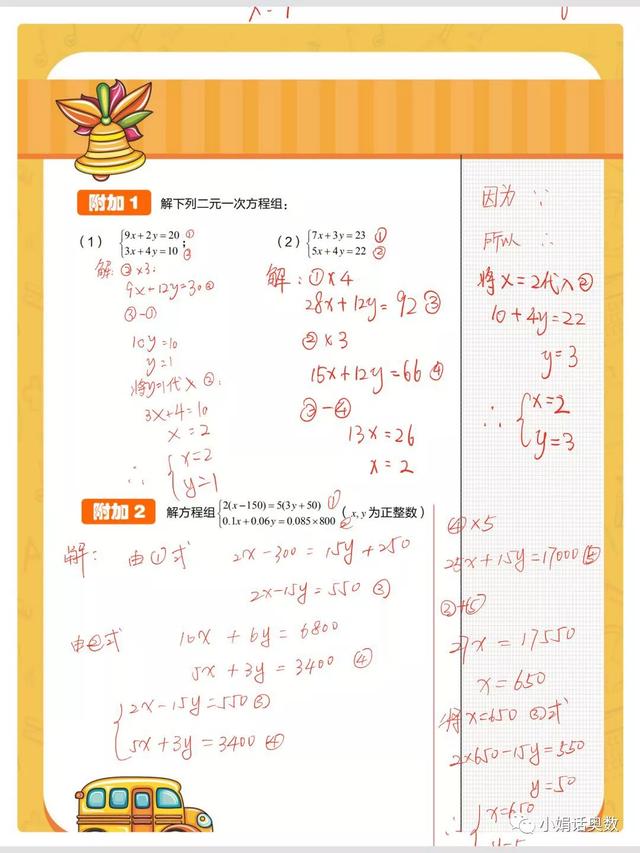 附加1 解下列二元一次方程组：
（1） {9x+2y=20 ①
3x+4y=10 ② ;
解: ②×3:
9x+12y=30 ③
③-①
10y=10
y=1
将y=1代入②:
3x+4=10
x=2
∴ {x=2
y=1
（2） {7x+3y=23 ①
5x+4y=22 ②
解: ①×4
28x+12y=92 ③
②×3
15x+12y=66 ④
③-④
13x=26
x=2
因为 ∵
所以 ∴
将x=2代入②
10+4y=22
y=3
∴ {x=2
y=3
附加2 解方程组 {2(x-150)=5(3y+50) ①
0.1x+0.06y=0.085×800 ② （x, y为正整数）
解: 由①式 2x-300=15y+250
2x-15y=550 ③
由②式 10x+6y=6800
5x+3y=3400 ④
{2x-15y=550 ③
5x+3y=3400 ④
④×5
25x+15y=17000 ⑤
27x=17550
x=650
将x=650 ③式
2×650-15y=550
y=50
∴ {x=650
小娟话奥数